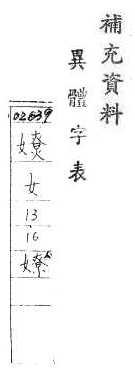 補充資料
異體字表
02639
嫽
女
13
16
嫽